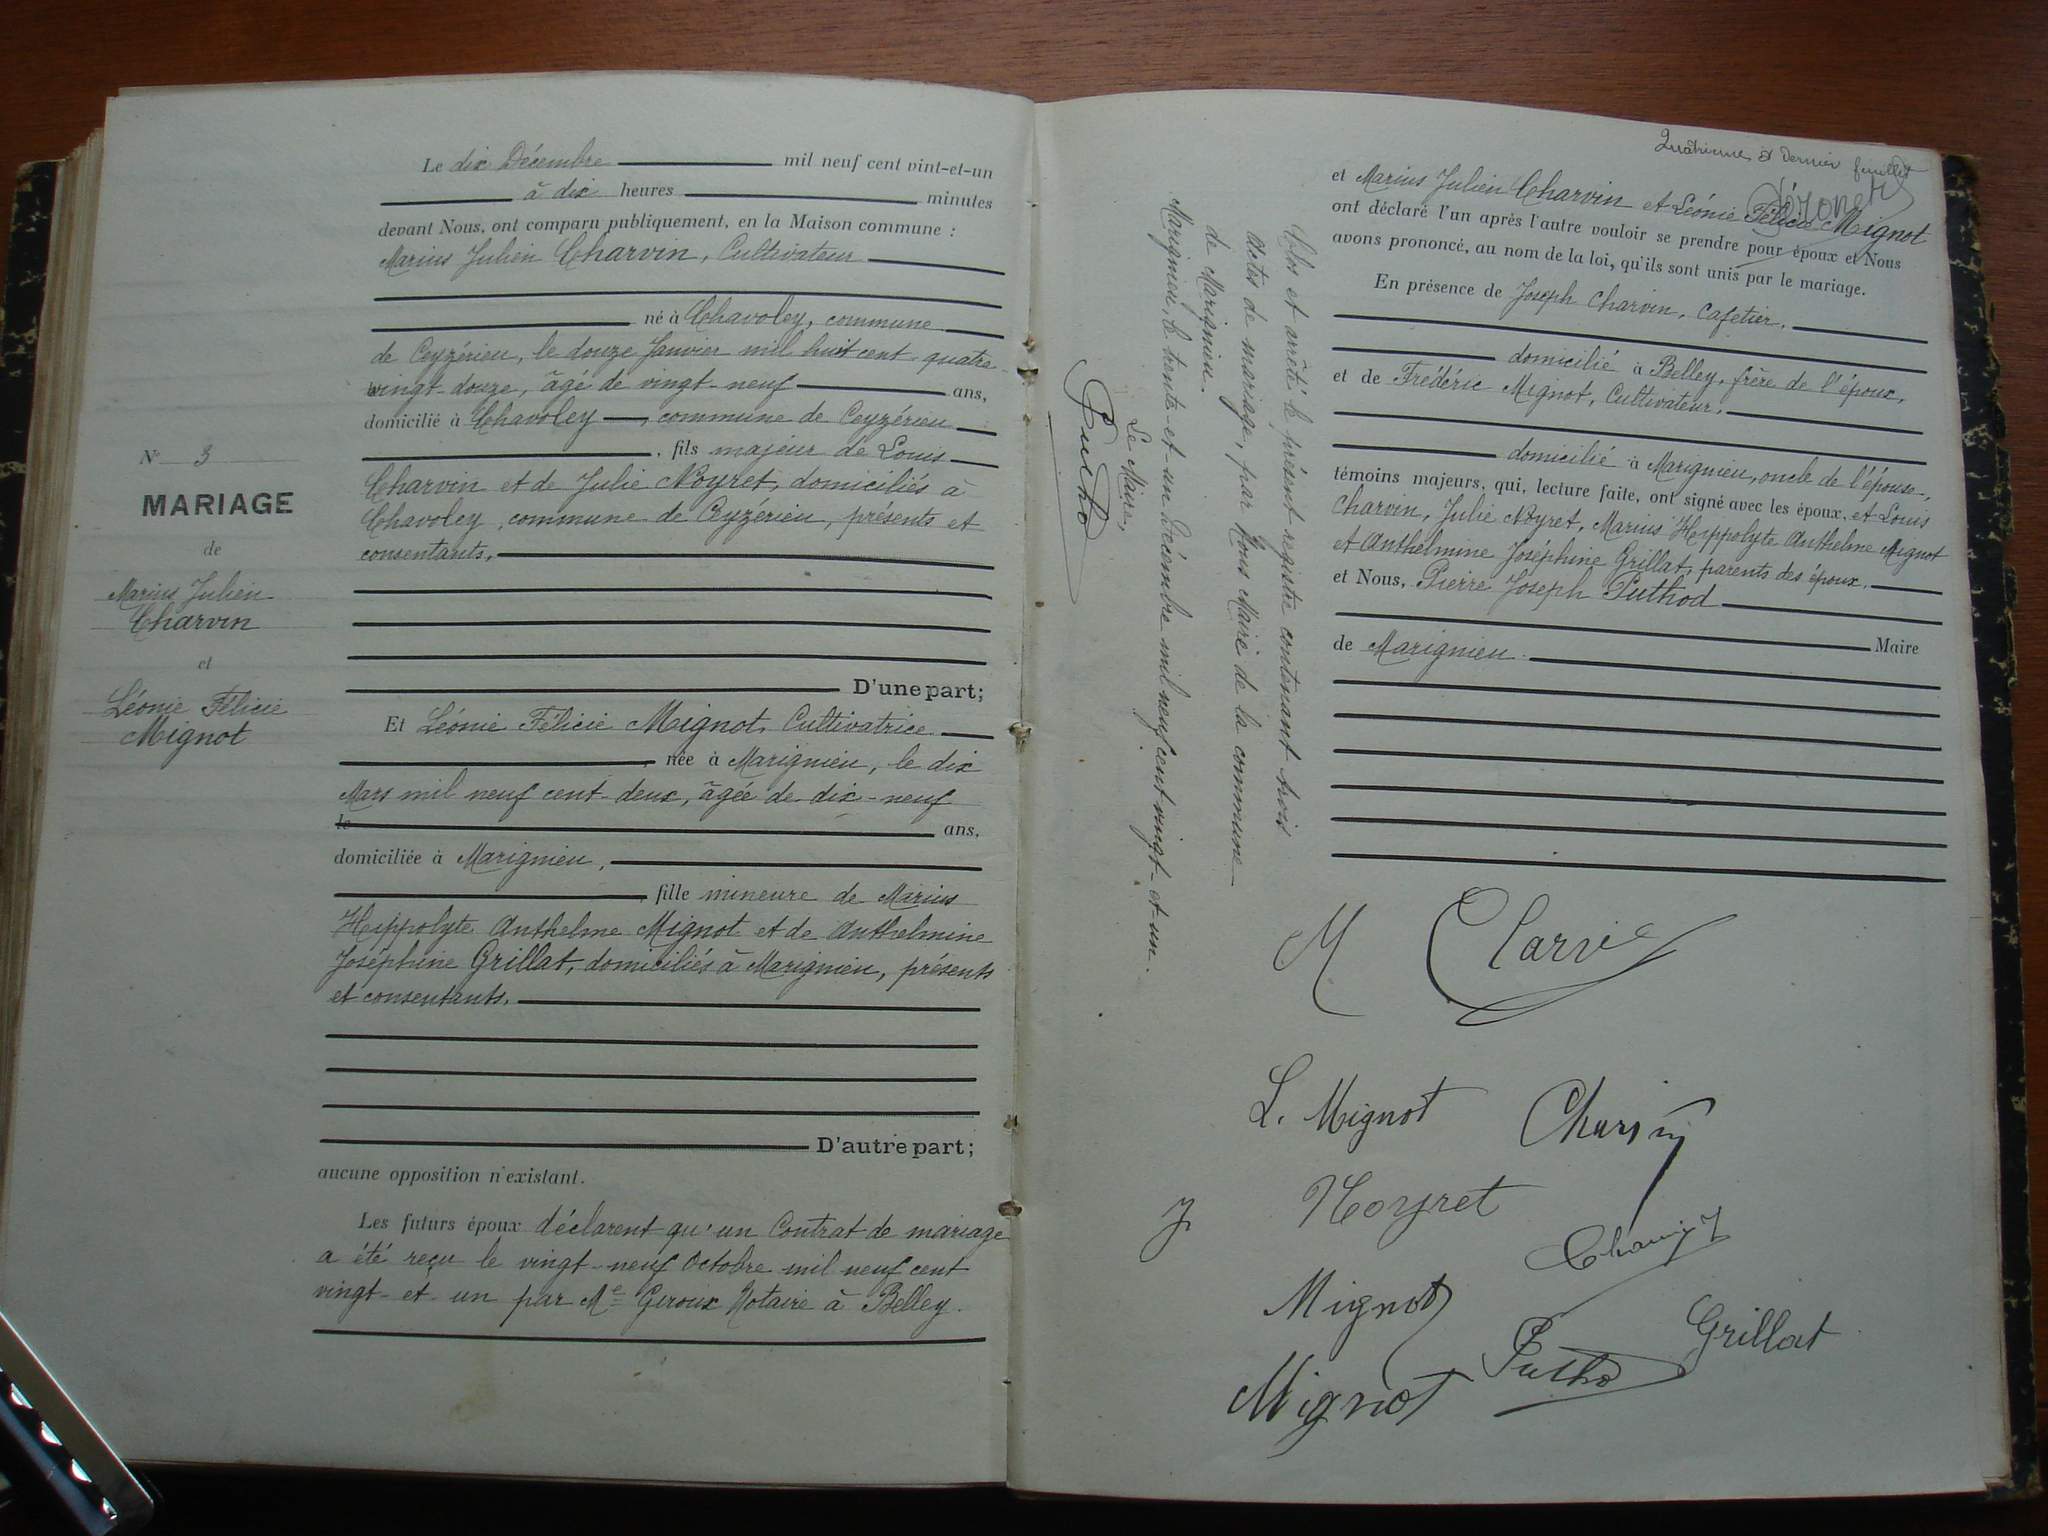 Le dix Décembre mil neuf cent vint-et-un
à dix heures minutes
devant Nous, ont comparu publiquement, en la Maison commune :
Marius Julien Charvin, Cultivateur
né à Chavoley, commune
de Ceyzérieu, le douze Janvier mil huit cent quatre-
vingt-douze, âgé de vingt-neuf ans,
domicilié à Chavoley, commune de Ceyzérieu
, fils majeur de Louis
Charvin et de Julie Noyret, domiciliés à
Chavoley, commune de Ceyzérieu, présents et
consentants.
D'une part;
Et Léonie Félicie Mignot, Cultivatrice
, née à Marignieu, le dix
Mars mil neuf cent-deux, âgée de dix-neuf
le ans,
domiciliée à Marignieu,
, fille mineure de Marius
Hippolyte Anthelme Mignot et de Anthelmine
Joséphine Grillat, domiciliés à Marignieu, présents
et consentants.
D'autre part;
aucune opposition n'existant.
Les futurs époux déclarent qu'un Contrat de mariage
a été reçu le vingt-neuf Octobre mil neuf cent
vingt-et-un par Me Giroux Notaire à Belley.
N° 3
MARIAGE
de
Marius Julien
Charvin
et
Léonie Félicie
Mignot
Clos et arrêté le présent registre contenant trois
actes de mariage, par Nous Maire de la commune
de Marignieu.
Marignieu, le trente-et-un Décembre mil neuf cent vingt-et-un.
Le Maire,
Putho
Quatrième et dernier feuillet
et Marius Julien Charvin et Léonie Félicie Mignot
ont déclaré l'un après l'autre vouloir se prendre pour époux et Nous
avons prononcé, au nom de la loi, qu'ils sont unis par le mariage.
En présence de Joseph Charvin, Cafetier,
domicilié à Belley, frère de l'époux,
et de Frédéric Mignot, Cultivateur,
domicilié à Marignieu, oncle de l'épouse,
témoins majeurs, qui, lecture faite, ont signé avec les époux, et Louis
Charvin, Julie Noyret, Marius Hippolyte Anthelme Mignot
et Anthelmine Joséphine Grillat, parents des époux.
et Nous, Pierre Joseph Puthod
Maire
de Marignieu
M Charvin
L. Mignot Charvin
J Noyret
Charvin J
Mignot
Grillat
Putho
Mignot